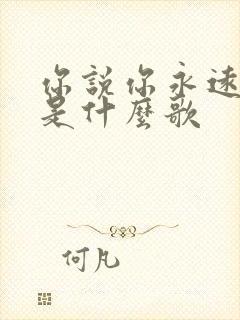 你說你永遠
是什麼歌
何凡